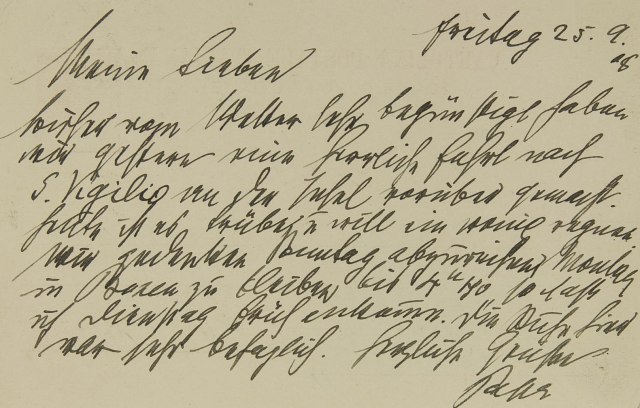 Freitag 25. 9. 08
Meine Lieben
Bisher vom Wetter sehr begünstigt haben
wir gestern eine herrliche Fahrt nach
S. Vigilio an der Insel vorüber gemacht.
Heute ist es trübe, u will ein wenig regnen
wir gedenken Sonntag abzureisen Montag
in Bozen zu bleiben bis 4 u 40 so dass
ich Dienstag früh ankomme. Die Ruhe hier
war sehr behaglich. Herzliche Grüße
Papa